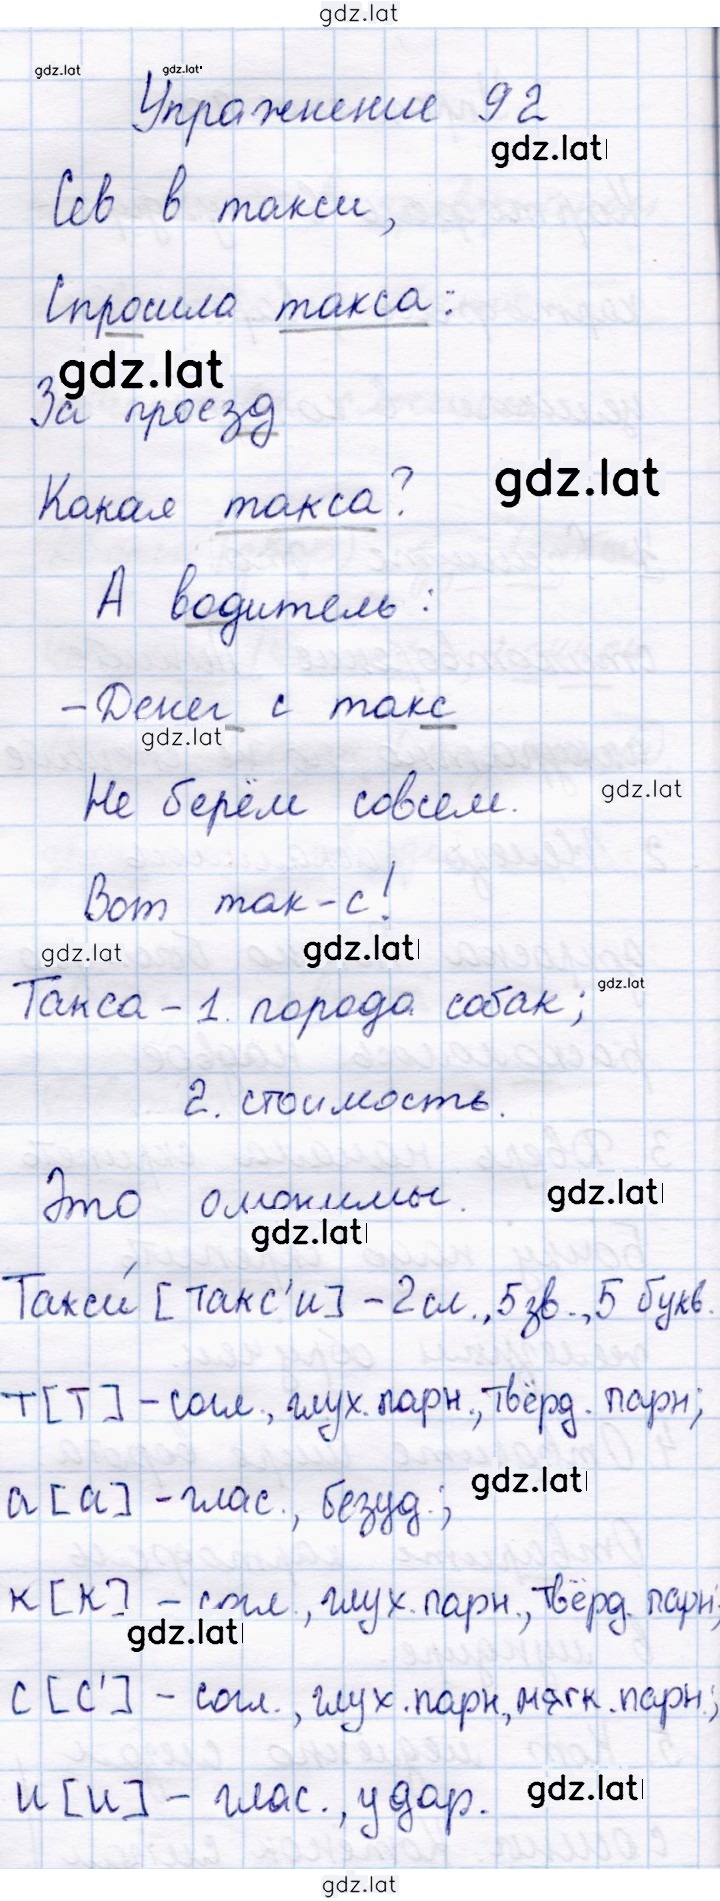 gdz.lat
gdz.lat gdz.lat
Упражнение 92
gdz.lat
Сев в такси,
Спросила такса:
gdz.lat
За проезд
gdz.lat
Какая такса?
А водитель:
- Денег с такс
gdz.lat
gdz.lat
Не берём совсем.
Вот так-с!
gdz.lat gdz.lat
gdz.lat
Такса - 1. порода собак;
2. стоимость.
gdz.lat
Это омонимы.
gdz.lat
Такси́ [такс'и] - 2 сл., 5 зв., 5 букв.
т [т] - согл., глух. парн., твёрд. парн;
gdz.lat
а [а] - глас., безуд.;
к [к] - согл., глух. парн., твёрд. парн;
gdz.lat
с [с'] - согл., глух. парн, мягк. парн.;
gdz.lat
и [и] - глас., удар.
gdz.lat